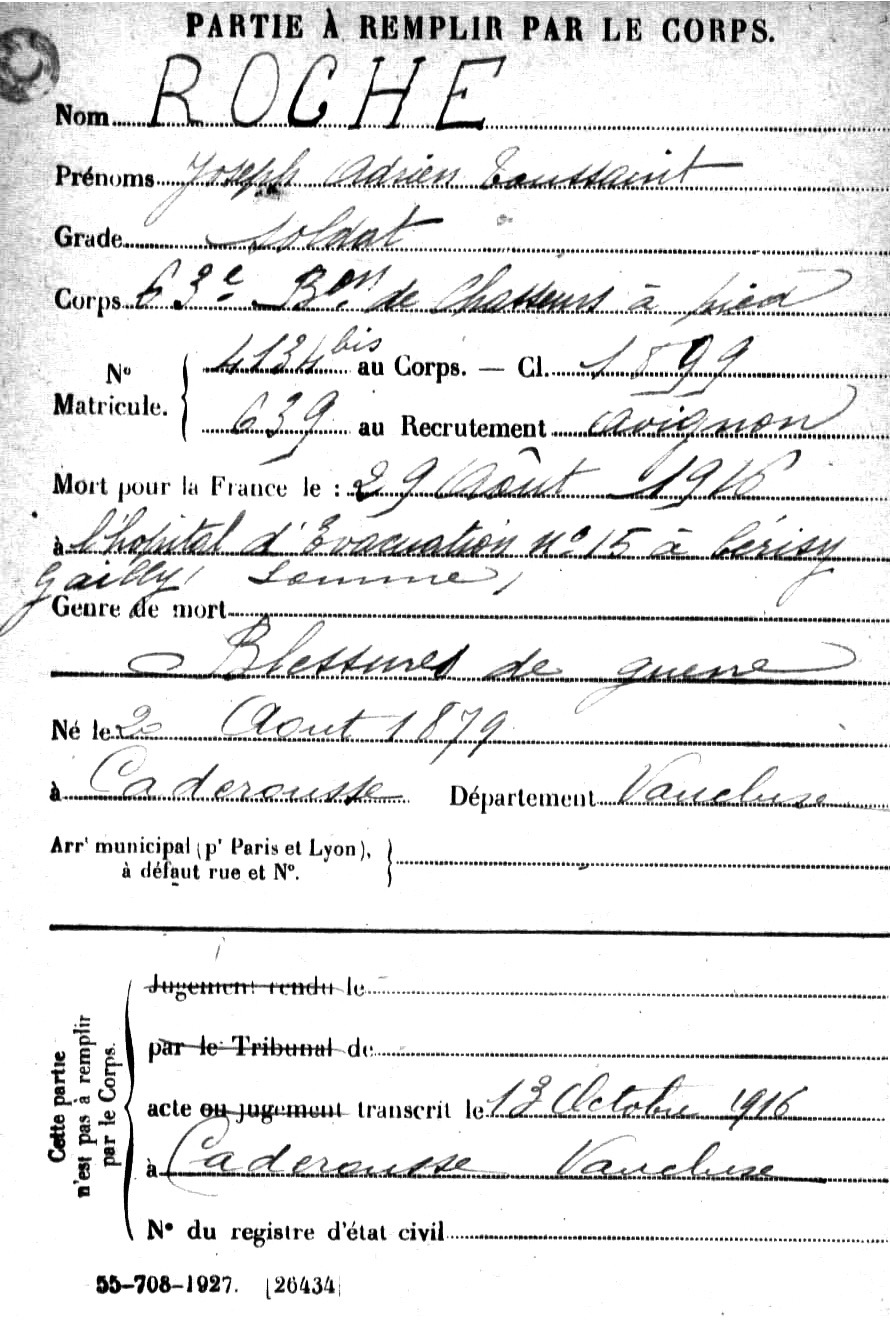 PARTIE À REMPLIR PAR LE CORPS.
Nom ROCHE
Prénoms Joseph Adrien Toussaint
Grade Soldat
Corps 63e Bon de Chasseurs à pied
No Matricule. 4134 bis au Corps. — Cl. 1899
639 au Recrutement Avignon
Mort pour la France le : 29 Août 1916
à l'hopital d'Evacuation No 15 à Cérisy
Gailly, Somme,
Genre de mort
Blessures de guerre
Né le 20 Aout 1879
à Caderousse Département Vaucluse
Arrt municipal (pr Paris et Lyon),
à défaut rue et No.
Cette partie
n'est pas à remplir
par le Corps.
Jugement rendu le
par le Tribunal de
acte ou jugement transcrit le 13 Octobre 1916
à Caderousse Vaucluse
No du registre d'état civil
55-708-1927. [26434]